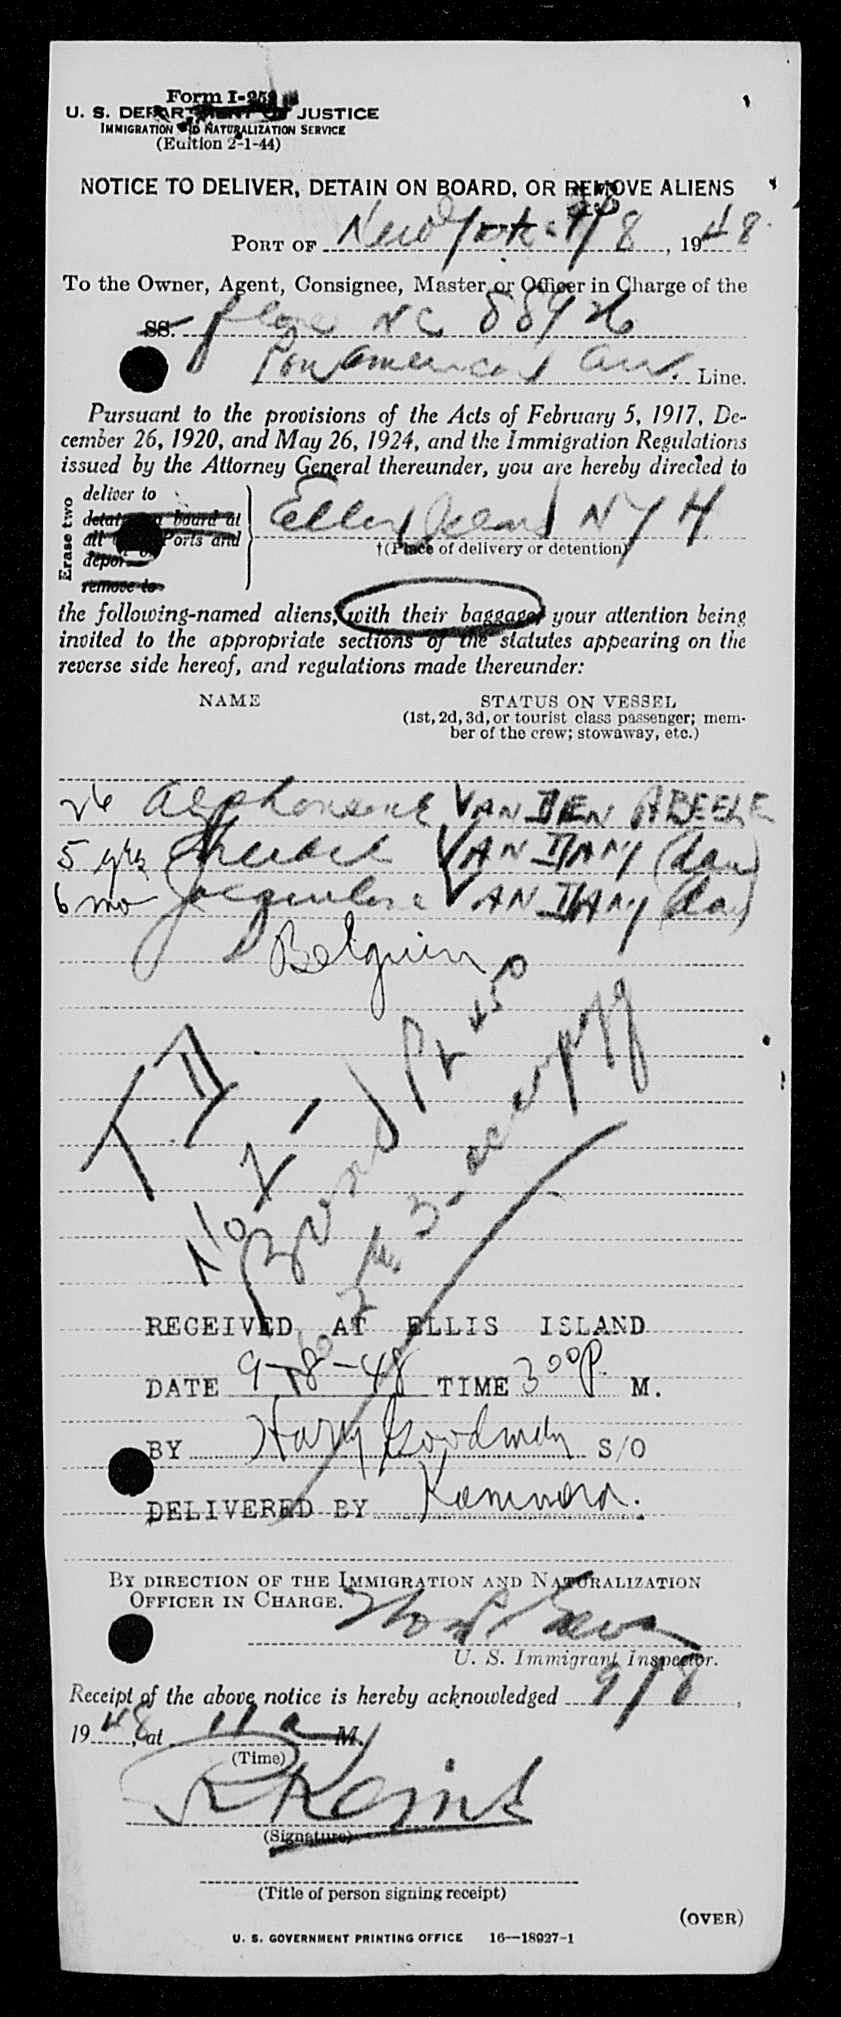 Form I-259
U. S. DEPARTMENT OF JUSTICE
IMMIGRATION AND NATURALIZATION SERVICE
(Edition 2-1-44)
NOTICE TO DELIVER, DETAIN ON BOARD, OR REMOVE ALIENS
PORT OF New York 9/8, 1948
To the Owner, Agent, Consignee, Master or Officer in Charge of the
SS. plane NC 88926
Pan American Air. Line.
Pursuant to the provisions of the Acts of February 5, 1917, De-
cember 26, 1920, and May 26, 1924, and the Immigration Regulations
issued by the Attorney General thereunder, you are hereby directed to
Erase two
deliver to
detain on board at
all Ports and
depor
remove to
Ellis Island NYH
†(Place of delivery or detention)
the following-named aliens, with their baggage, your attention being
invited to the appropriate sections of the statutes appearing on the
reverse side hereof, and regulations made thereunder:
NAME
STATUS ON VESSEL
(1st, 2d, 3d, or tourist class passenger; mem-
ber of the crew; stowaway, etc.)
26 Alphonsine VAN DEN ABEELE
5 yrs VAN DAMY (dau)
6 mo Jacqueline VAN DAMY (dau)
Belgium
TD
No 2-
Bond Pr 450
No 3-
RECEIVED AT ELLIS ISLAND
DATE 9-8-48 TIME 3 00 P. M.
BY Harry Goodman S/O
DELIVERED BY
BY DIRECTION OF THE IMMIGRATION AND NATURALIZATION
OFFICER IN CHARGE.
U. S. Immigrant Inspector.
Receipt of the above notice is hereby acknowledged 9/8,
1948, at 11 a M.
(Time)
(Signature)
(Title of person signing receipt)
(OVER)
U. S. GOVERNMENT PRINTING OFFICE 16—18927-1